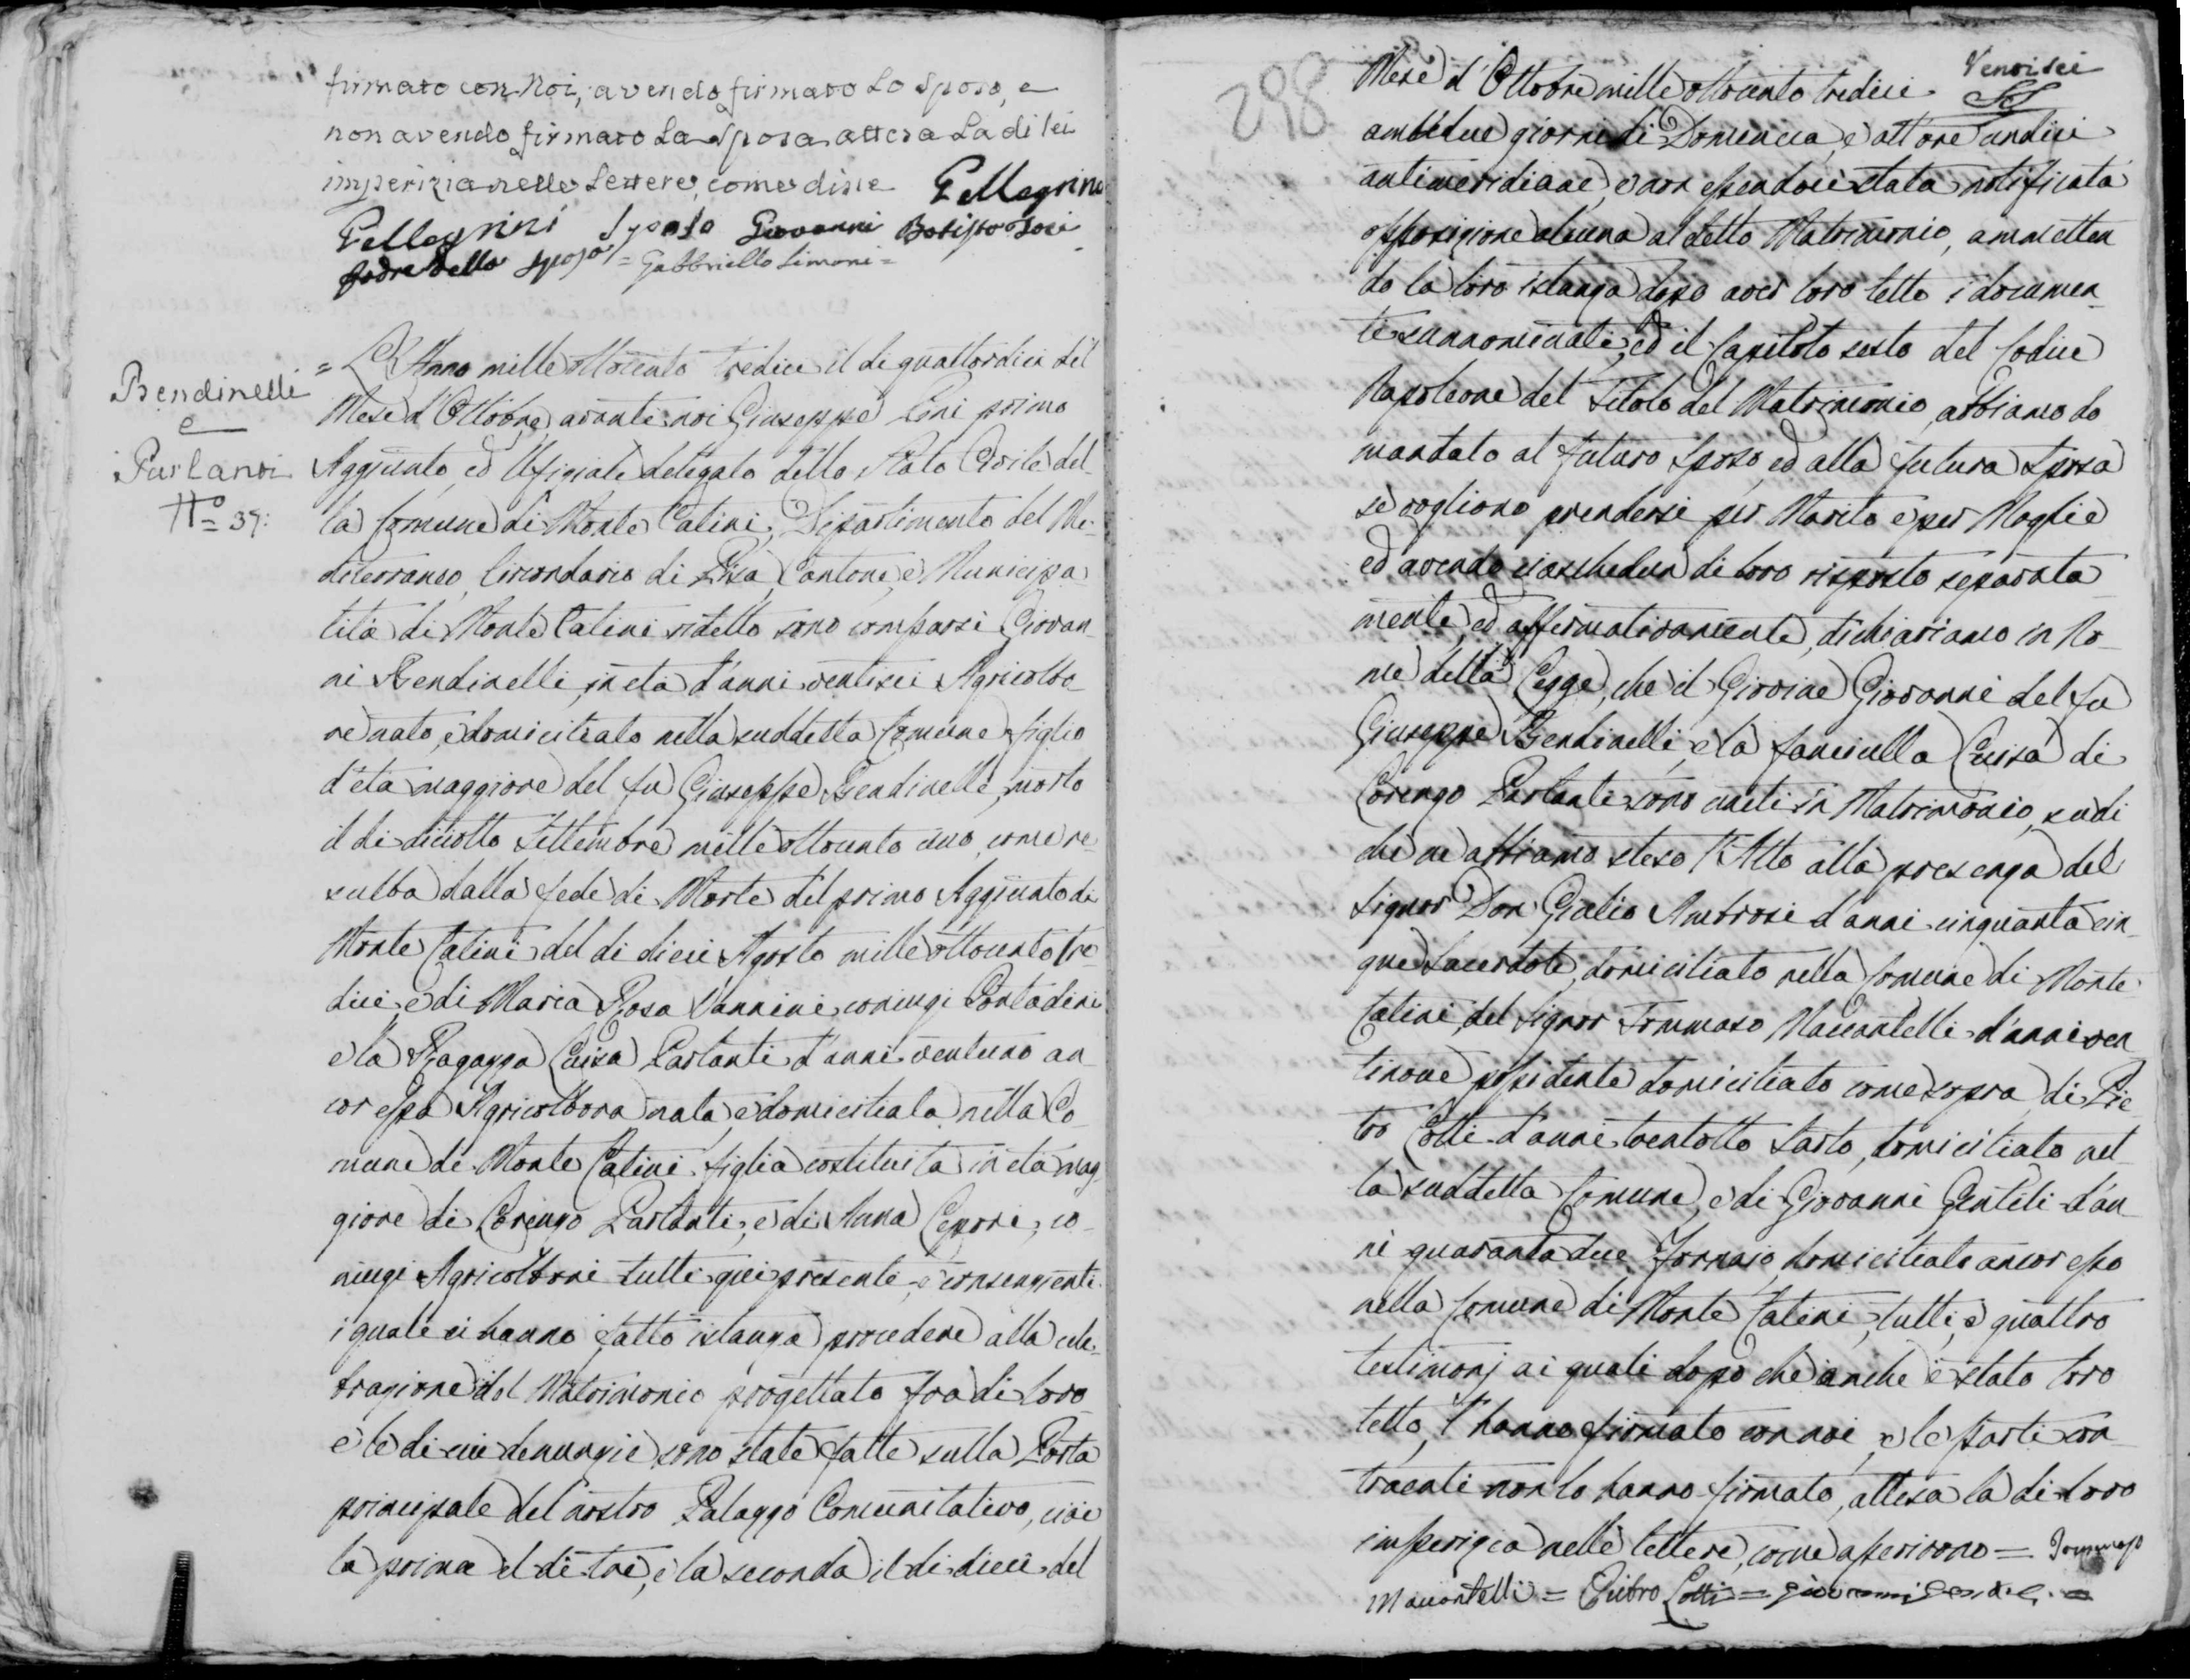 firmato con Noi, avendo firmato Lo Sposo, e
non avendo firmato La Sposa attesa La di lei
imperizia nelle Lettere, come disse Pellegrino
Pellegrini Sposo Giovanni Batista
padre dello sposo = Gabbriello Simoni =
Bendinelli
e
Parlanti
N.o = 37:
= L'Anno mille ottocento tredici il di quattordici del
Mese d'Ottobre avanti noi Giuseppe Pini primo
Aggiunto, ed Ufiziale delegato dello Stato Civile del-
la Comune di Monte Catini, Dipartimento del Me-
diterraneo, Circondario di Pisa, Cantone, e Municipa
lità di Monte Catini sudetto sono comparsi Giovan-
ni Bendinelli, in età d'anni ventisei Agricolto-
re nato, e domiciliato nella suddetta Comune figlio
d'età maggiore del fu Giuseppe Bendinelli, morto
il di diciotto Settembre mille ottocento uno, come re-
sulta dalla fede di Morte del primo Aggiunto di
Monte Catini del di dieci Agosto mille ottocento tre-
dici, e di Maria Rosa Vannini, coniugi Contadini
e la Ragazza Luisa Parlanti d'anni ventuno an
cor essa Agricoltora nata, e domiciliata nella Co-
mune di Monte Catini figlia costituita in età mag
giore di Lorenzo Parlanti, e di Anna Lepori, co-
niugi Agricoltori tutti qui presenti, e consenzienti
i quali ci hanno fatto istanza procedere alla cele-
brazione del Matrimonio progettato fra di loro
e le di cui denunzie sono state fatte sulla Porta
principale del nostro Palazzo Comunitativo, cioè
la prima il di tre, e la seconda il di dieci del
298
Ventisei
Mese d'Ottobre mille ottocento tredici
ambedue giorni di Domenica, e all'ore undici
antimeridiane, e non essendoci stata notificata
opposizione alcuna al detto Matrimonio, ammetten
do la loro istanza dopo aver loro letto i documen-
ti sunnominati, ed il Capitolo sesto del Codice
Napoleone del Titolo del Matrimonio, abbiamo do
mandato al futuro Sposo, ed alla futura Sposa
se vogliono prendersi per Marito e per Moglie
ed avendo ciaschedun di loro risposto separata-
mente, ed affermativamente, dichiariamo in No-
me della Legge, che il Giovine Giovanni del fu
Giuseppe Bendinelli, e la fanciulla Luisa di
Lorenzo Parlanti sono uniti in Matrimonio, su di
che ne abbiamo steso l'Atto alla presenza del
Signor Don Giulio Ambrosi d'anni cinquanta cin-
que Sacerdote, domiciliato nella Comune di Monte
Catini, del Signor Tommaso Maccantelli d'anni ven
tinove possidente domiciliato come sopra, di Pie-
tro Lotti d'anni trentotto Sarto, domiciliato nel-
la suddetta Comune, e di Giovanni Gentili d'an-
ni quaranta due, Fornaio, domiciliato ancor esso
nella Comune di Monte Catini, tutti, e quattro
testimonj ai quali dopo che anche è stato loro
letto, l'hanno firmato con noi, e le parti con-
traenti non lo hanno firmato, attesa la di loro
imperizia nelle lettere, come asserirono = Tommaso
Maccantelli = Pietro Lotti = Giovanni Gentili =